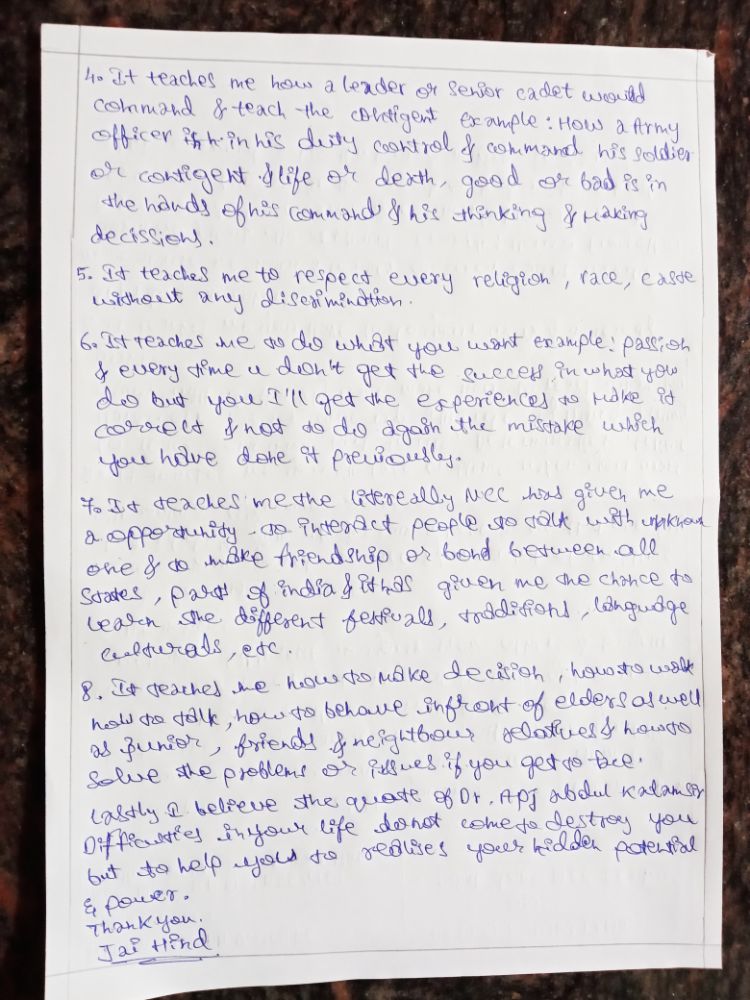 4. It teaches me how a leader or senior cadet would
command & teach the contigent example: How a Army
officer in his duty control & command his soldier
or contigent & life or death, good or bad is in
the hands of his command & his thinking & Making
decissions.
5. It teaches me to respect every religion, race, caste
without any discrimination.
6. It teaches me to do what you want example: passion
& every time u don't get the success in what you
do but you I'll get the experiences to Make it
correct & not to do again the mistake which
you have done it previously.
7. It teaches me the litereally NCC has given me
a opportunity to interact people to talk with unknown
one & to make friendship or bond between all
states, parts of india & it has given me the chance to
learn the different festivals, traditions, language
culturals, etc.
8. It teaches me how to Make decision, how to walk
how to talk, how to behave infront of elders as well
as junior, friends & neighbour relatives & how to
solve the problems or issues if you get to face.
Lastly I believe the quote of Dr. Apj abdul Kalam sir
Difficulties in your life do not come to destroy you
but to help you to realises your hidden potential
& power.
Thank you.
Jai Hind